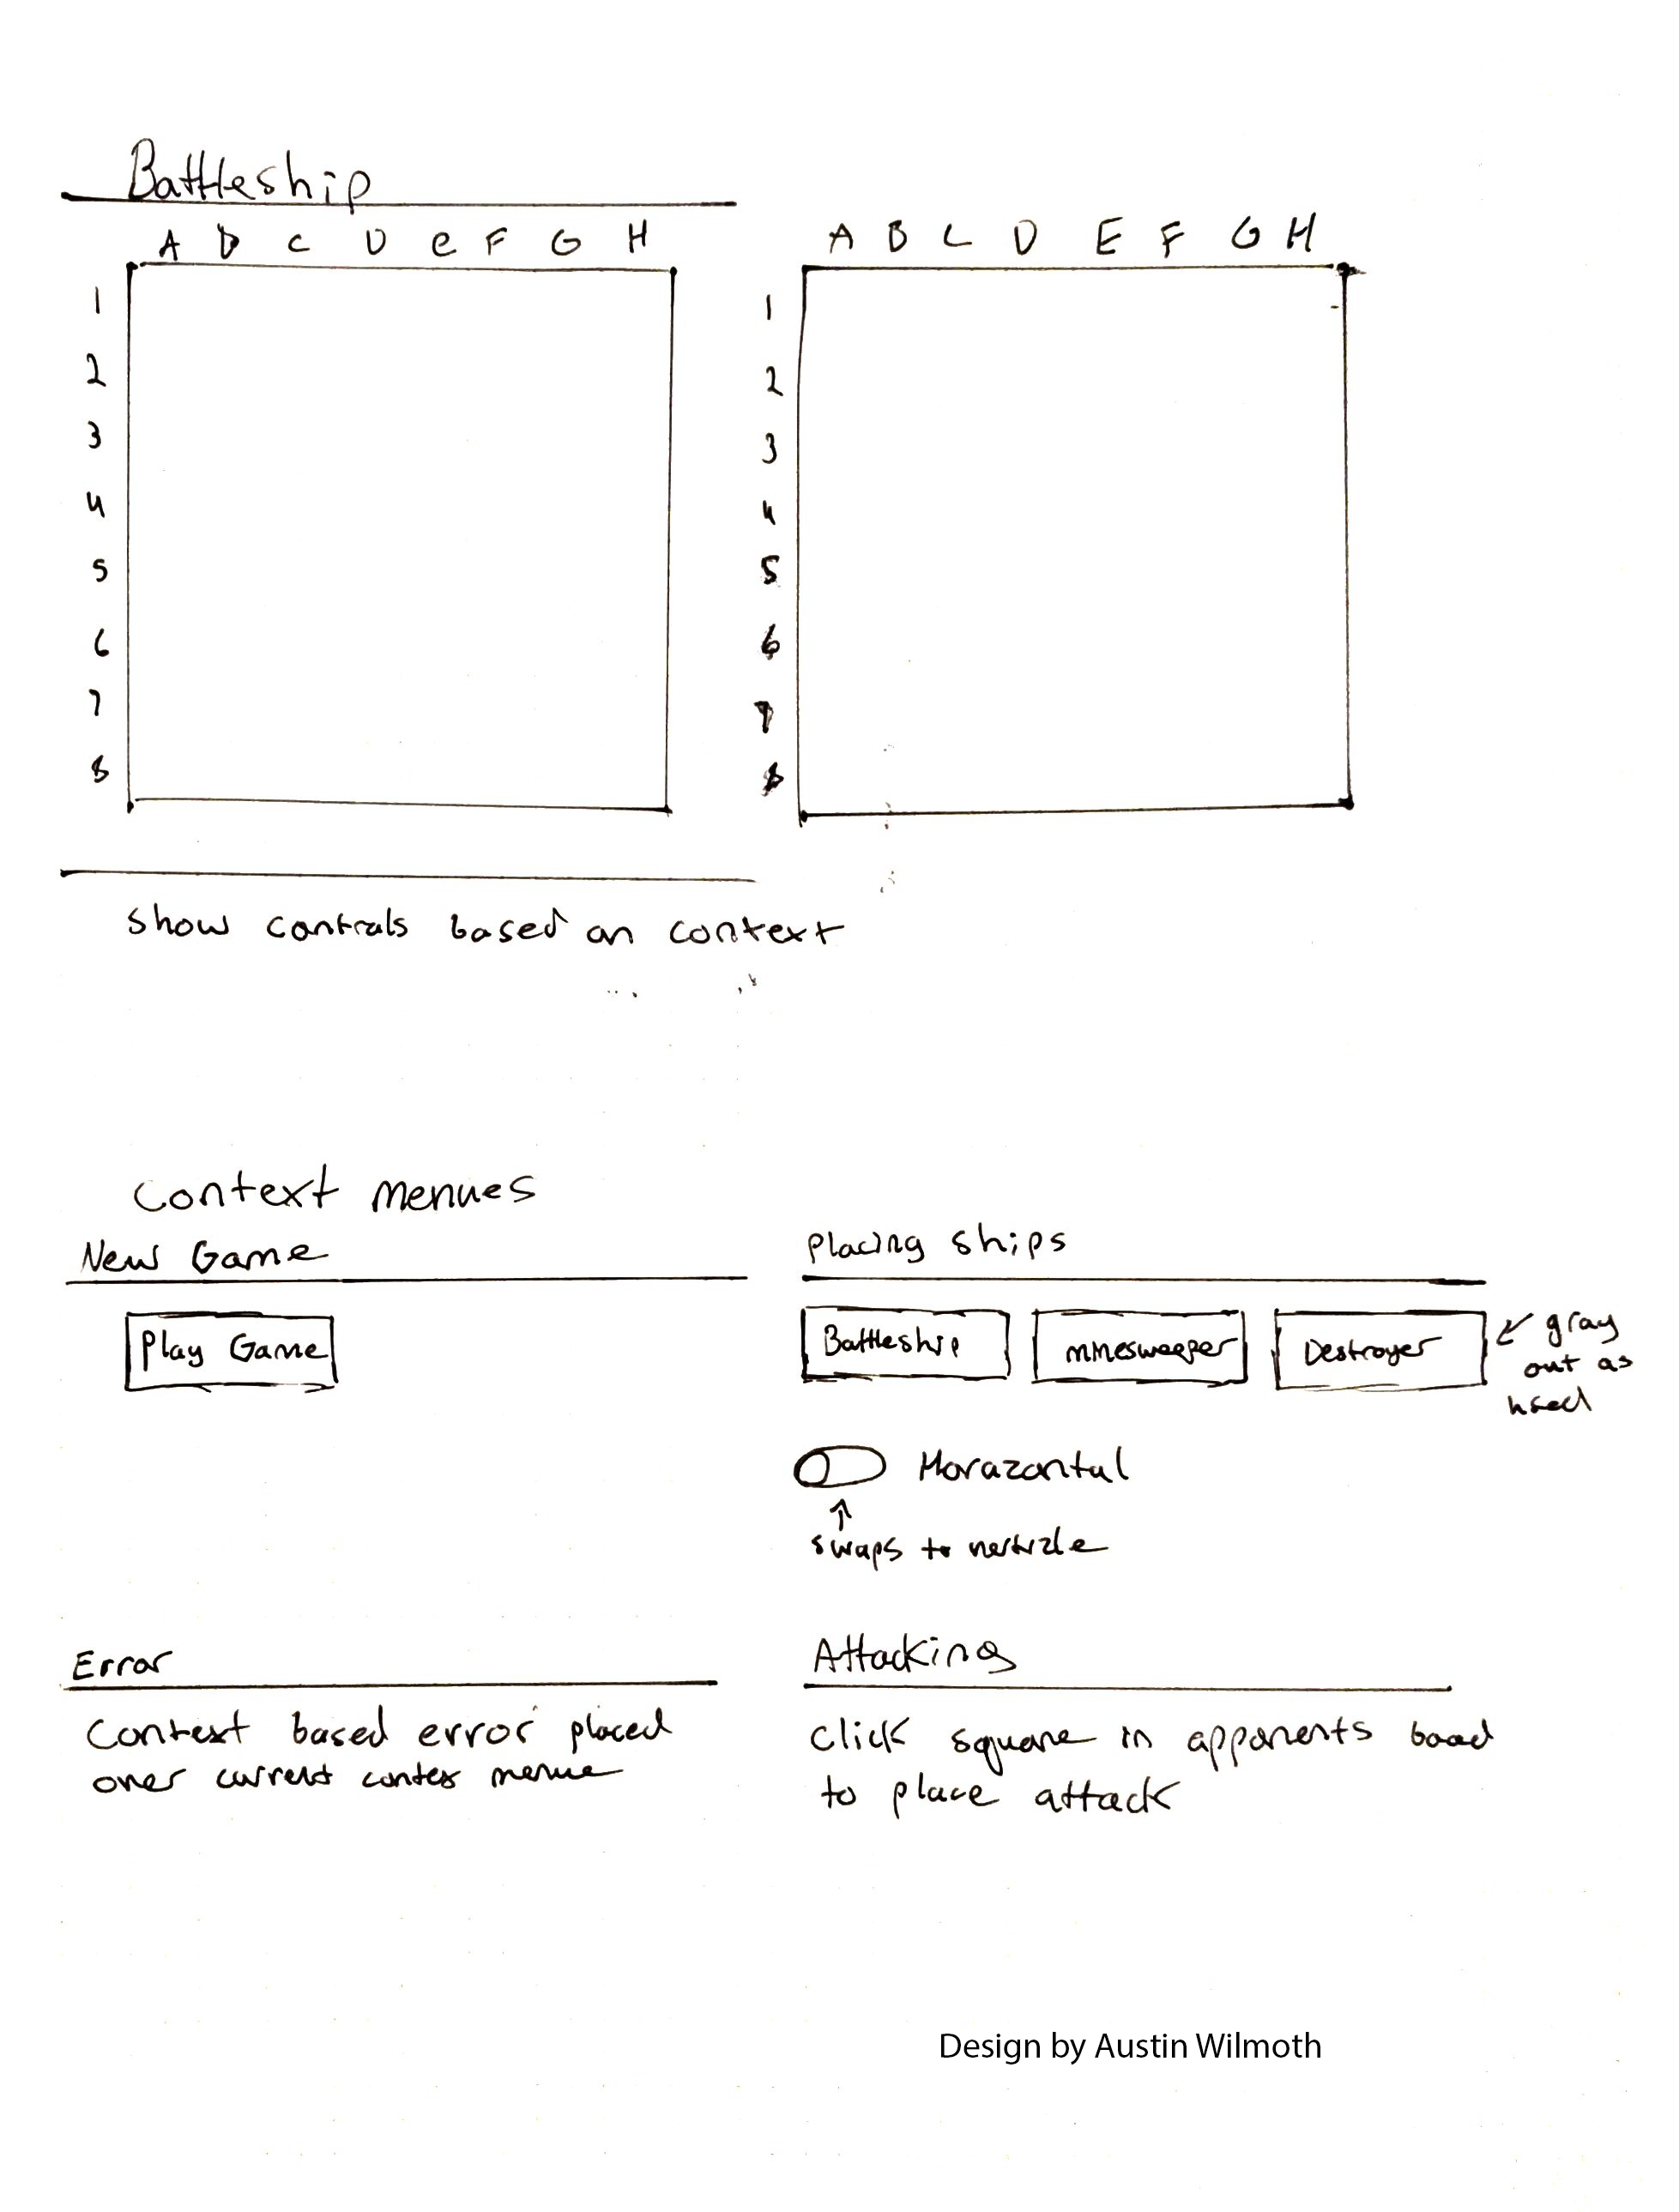 Battleship
A B C D e F G H
A B C D E F G H
1
2
3
4
5
6
7
8
1
2
3
4
5
6
7
8
Show controls based on context
Context menues
New Game
Play Game
Placing ships
Battleship
minesweeper
Destroyer
gray
out as
used
Horazontal
swaps to
Error
Context based error placed
over current contex menue
Attacking
Click square in opponents boad
to place attack
Design by Austin Wilmoth